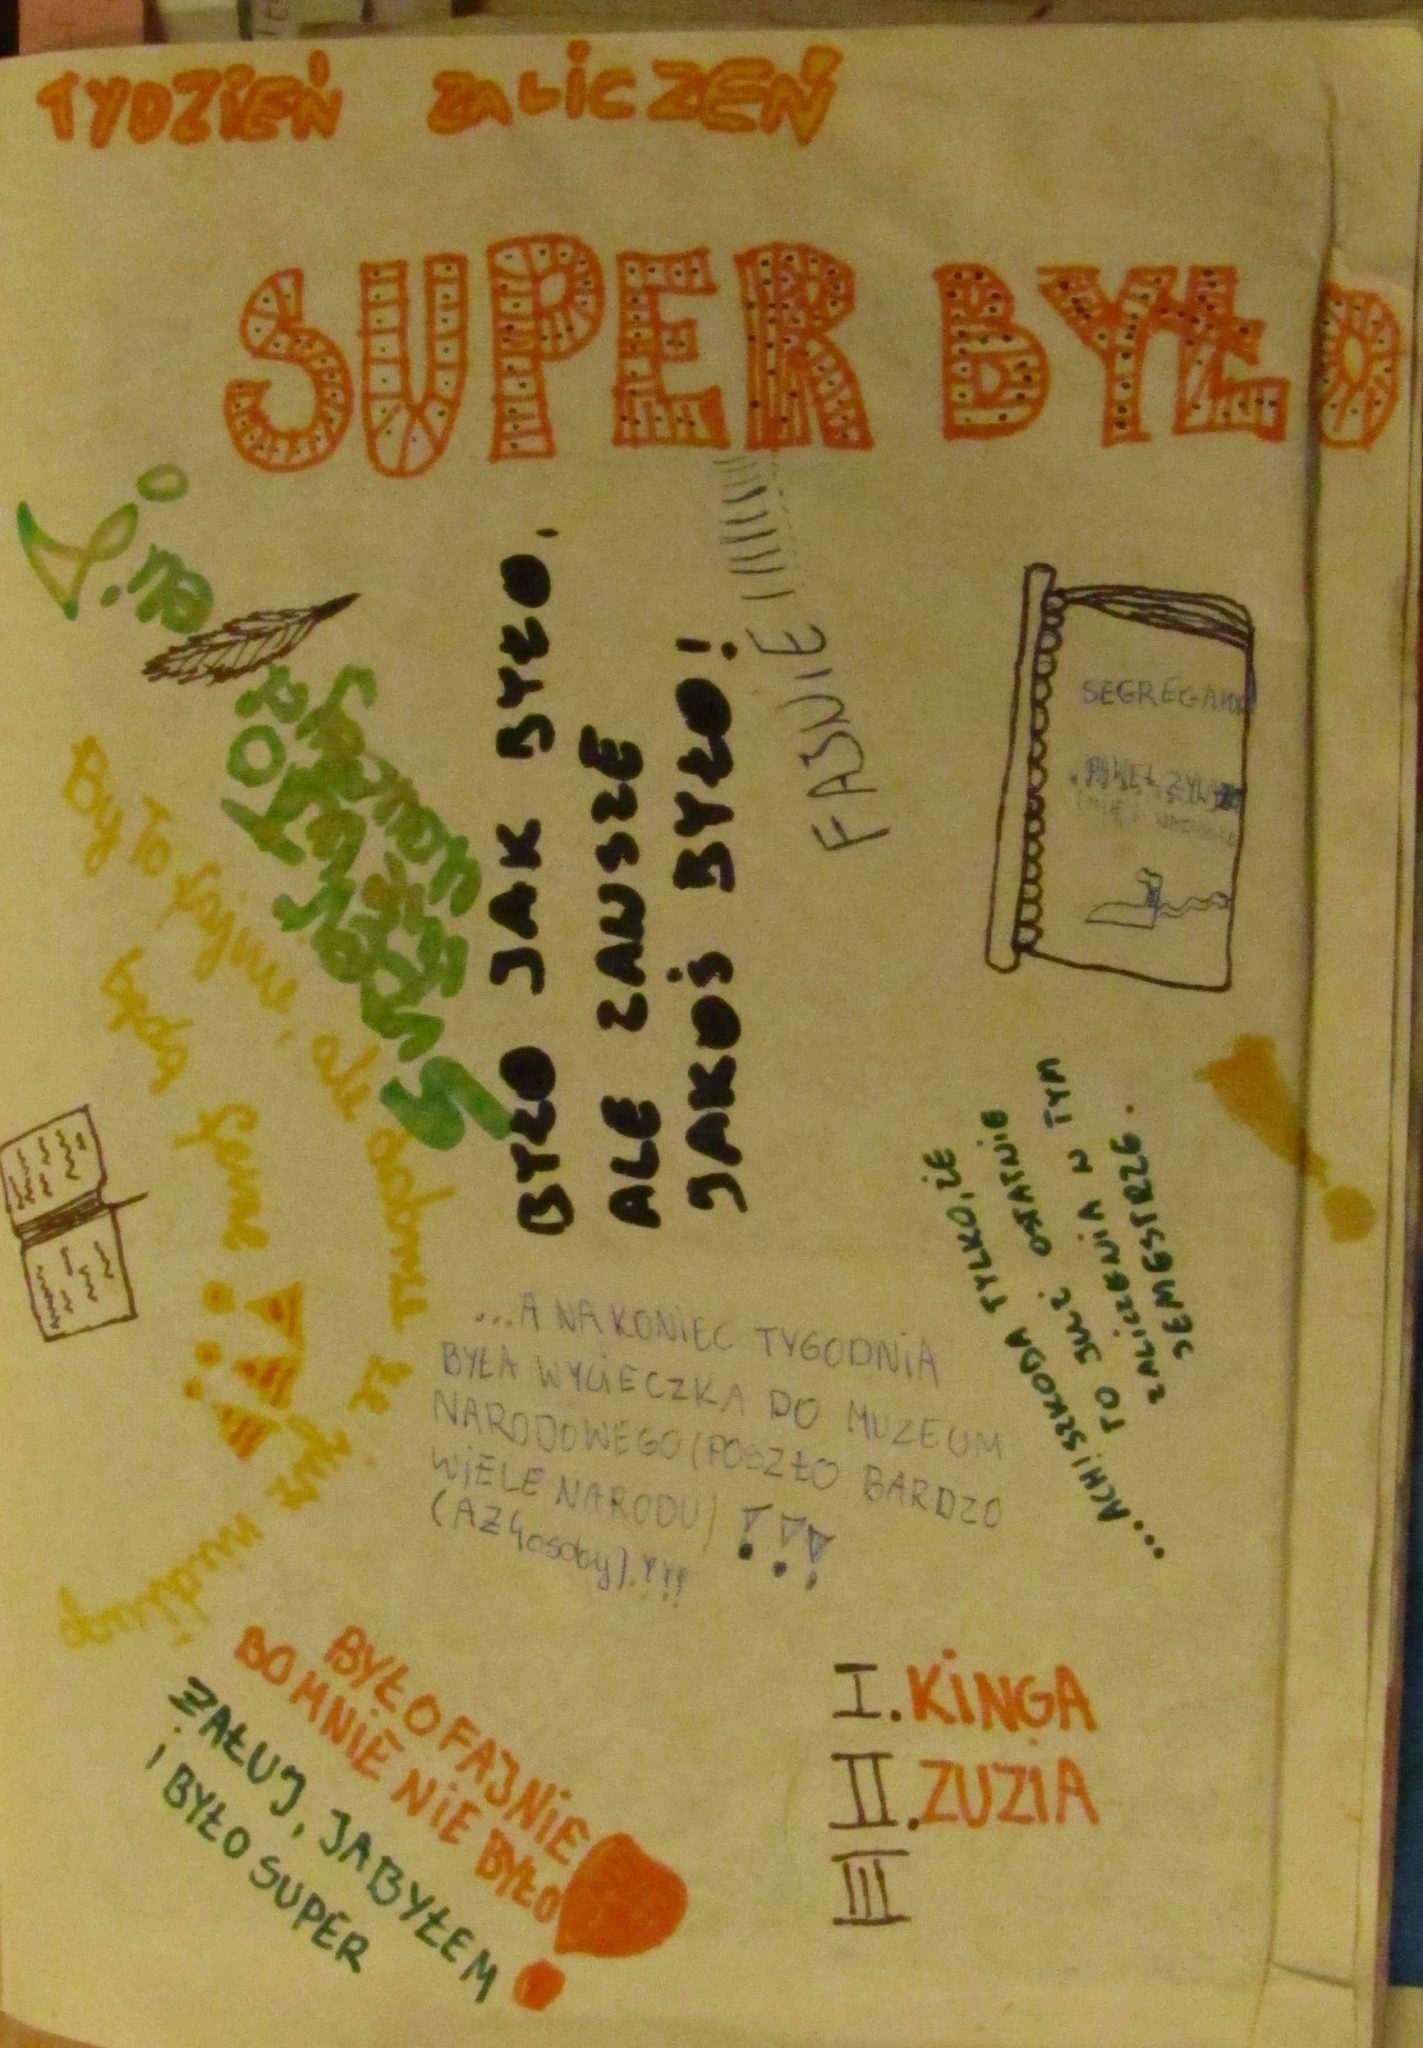 TYDZIEŃ ZALICZEŃ
SUPER BYŁO
BYŁO JAK BYŁO,
ALE ZAWSZE
JAKOŚ BYŁO!
FAJNIE !!!!!!!!!
SEGREGATOR
By To fajnie, ale dobrze że już
będą ferie !!!
...ACH! SZKODA TYLKO, ŻE
TO JUŻ OSTATNIE
ZALICZENIA W TYM
SEMESTRZE.
...A NA KONIEC TYGODNIA
BYŁA WYCIECZKA DO MUZEUM
NARODOWEGO (POSZŁO BARDZO
WIELE NARODU) !!!
(AŻ 4 osoby).!!!
BYŁO FAJNIE
BO MNIE NIE BYŁO!
ŻAŁUJ, JA BYŁEM
I BYŁO SUPER
I. KINGA
II. ZUZIA
III